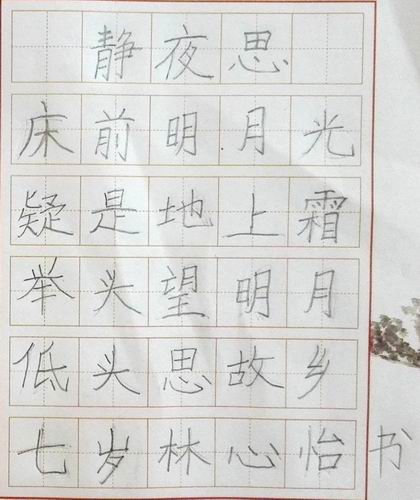 静夜思
床前明月光
疑是地上霜
举头望明月
低头思故乡
七岁林心怡书